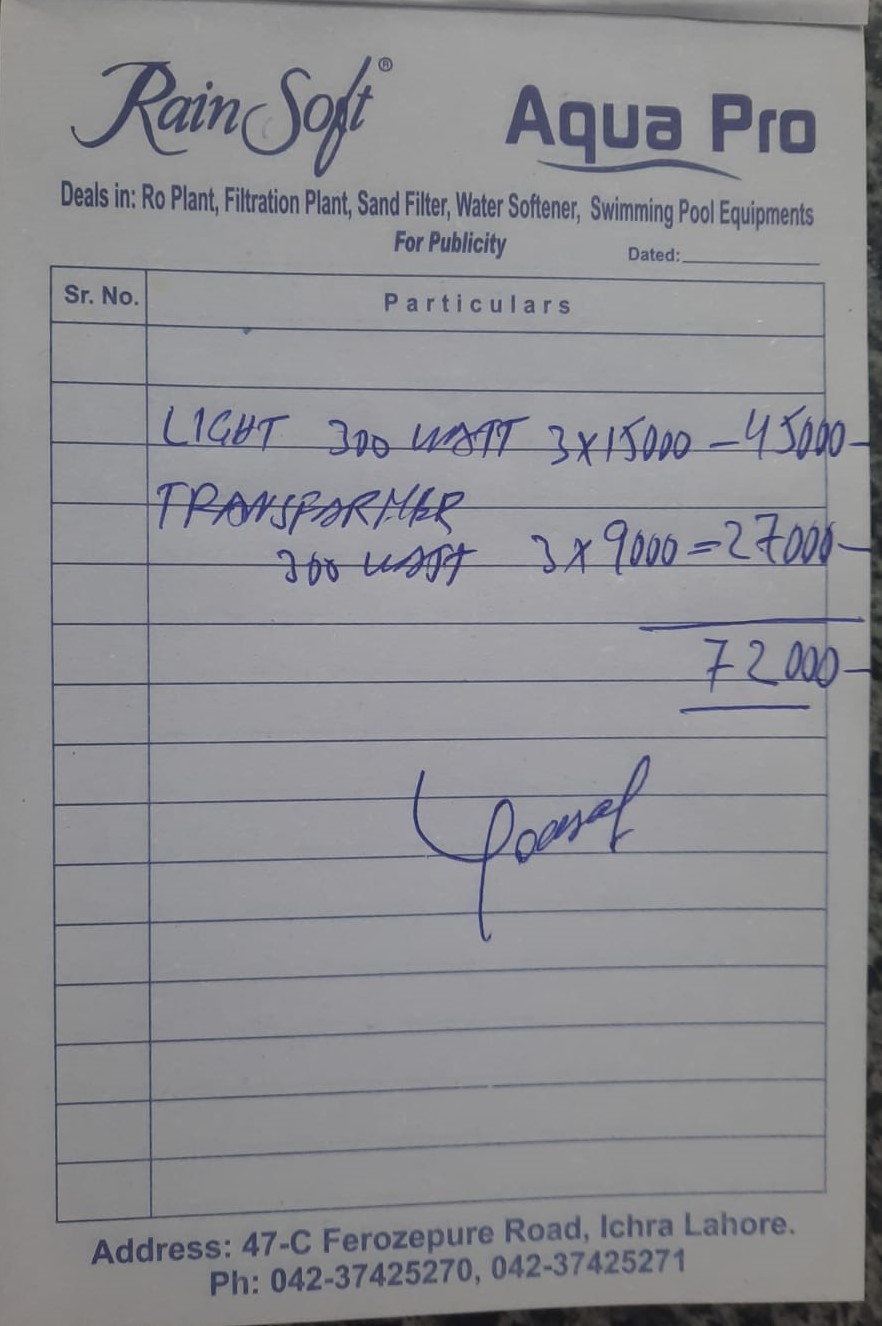 Rain Soft® Aqua Pro
Deals in: Ro Plant, Filtration Plant, Sand Filter, Water Softener, Swimming Pool Equipments
For Publicity Dated:
Sr. No. Particulars
LIGHT 300 WATT 3x15000 - 45000-
TRANSFARMER
300 WATT 3 x 9000 = 27000-
72000-
Address: 47-C Ferozepure Road, Ichra Lahore.
Ph: 042-37425270, 042-37425271